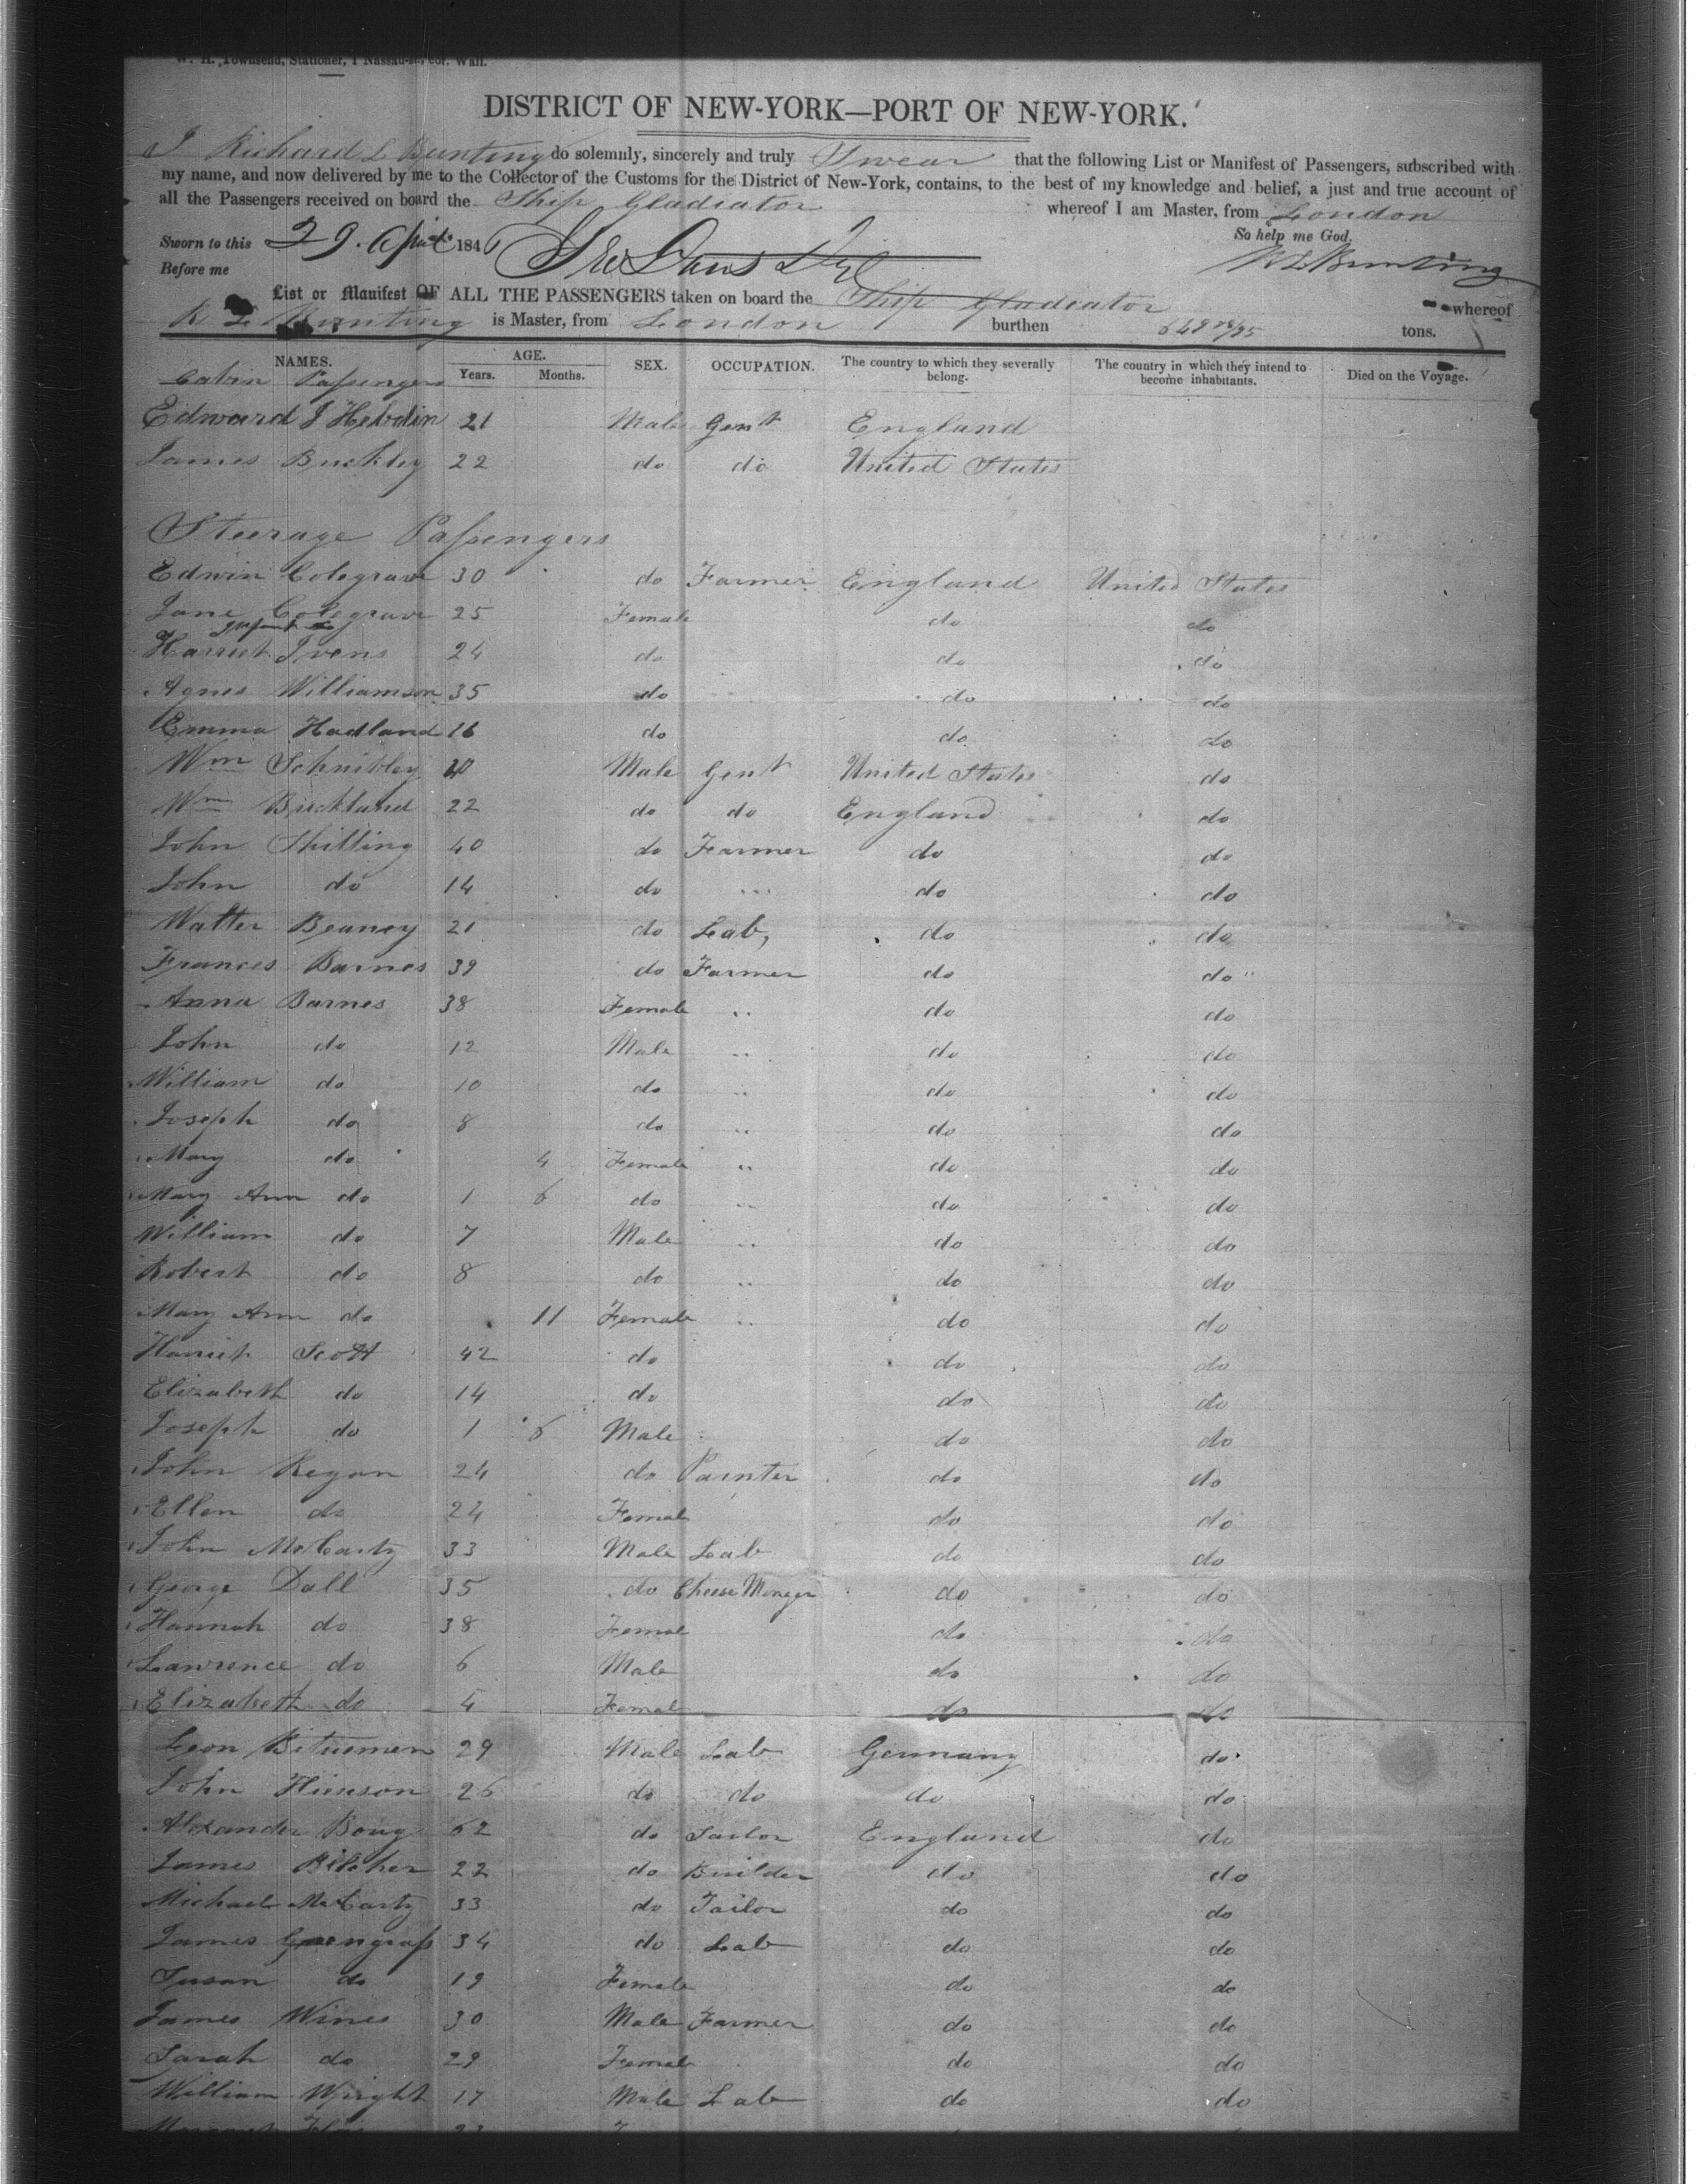 W. H. Townsend, Stationer, 1 Nassau-st, cor. Wall.
DISTRICT OF NEW-YORK—PORT OF NEW-YORK.
I Richard L Bunting do solemnly, sincerely and truly Swear that the following List or Manifest of Passengers, subscribed with
my name, and now delivered by me to the Collector of the Customs for the District of New-York, contains, to the best of my knowledge and belief, a just and true account of
all the Passengers received on board the Ship Gladiator whereof I am Master, from London
So help me God.
Sworn to this 29 April 1846
R L Bunting
Before me
List or Manifest OF ALL THE PASSENGERS taken on board the Ship Gladiator whereof
R L Bunting is Master, from London burthen 649 tons.
NAMES. AGE. Years. Months. SEX. OCCUPATION. The country to which they severally belong. The country in which they intend to become inhabitants. Died on the Voyage.
Cabin Passengers
Edward J 21 Male Gent England
James Buckley 22 do do United States
Steerage Passengers
Edwin Colegrave 30 do Farmer England United States
Jane Colegrave 25 Female do do
Infant
Harriet Ivens 24 do do do
Agnes Williamson 35 do do do
Emma Hadland 16 do do do
Wm Schnibley Male Gent United States do
Wm Buckland 22 do do England do
John Shilling 40 do Farmer do do
John do 14 do ... do do
Walter Beaney 21 do Lab, do do
Frances Barnes 39 do Farmer do do
Anna Barnes 38 Female .. do do
John do 12 Male .. do do
William do 10 do .. do do
Joseph do 8 do .. do do
Mary do 4 Female .. do do
Mary Ann do 1 6 do .. do do
William do 7 Male .. do do
Robert do 8 do .. do do
Mary Ann do 11 Female .. do do
Harriet Scott 42 do do do
Elizabeth do 14 do do do
Joseph do 1 Male do do
John Regan 24 do Painter do do
Ellen do 24 Female do do
John McCarty 33 Male Lab do do
George Dall 35 do Cheese Monger do do
Hannah do 38 Female do do
Lawrence do 6 Male do do
Elizabeth do 4 Female do do
Leon 29 Male Lab Germany do
John 26 do do do do
Alexander Boug 62 do England do
James Bilcher 22 do Builder do do
Michael McCarty 33 do Tailor do do
James 34 do Lab do do
Susan do 19 Female do do
James Wines 30 Male Farmer do do
Sarah do 29 Female do do
William Wright 17 Male Lab do do